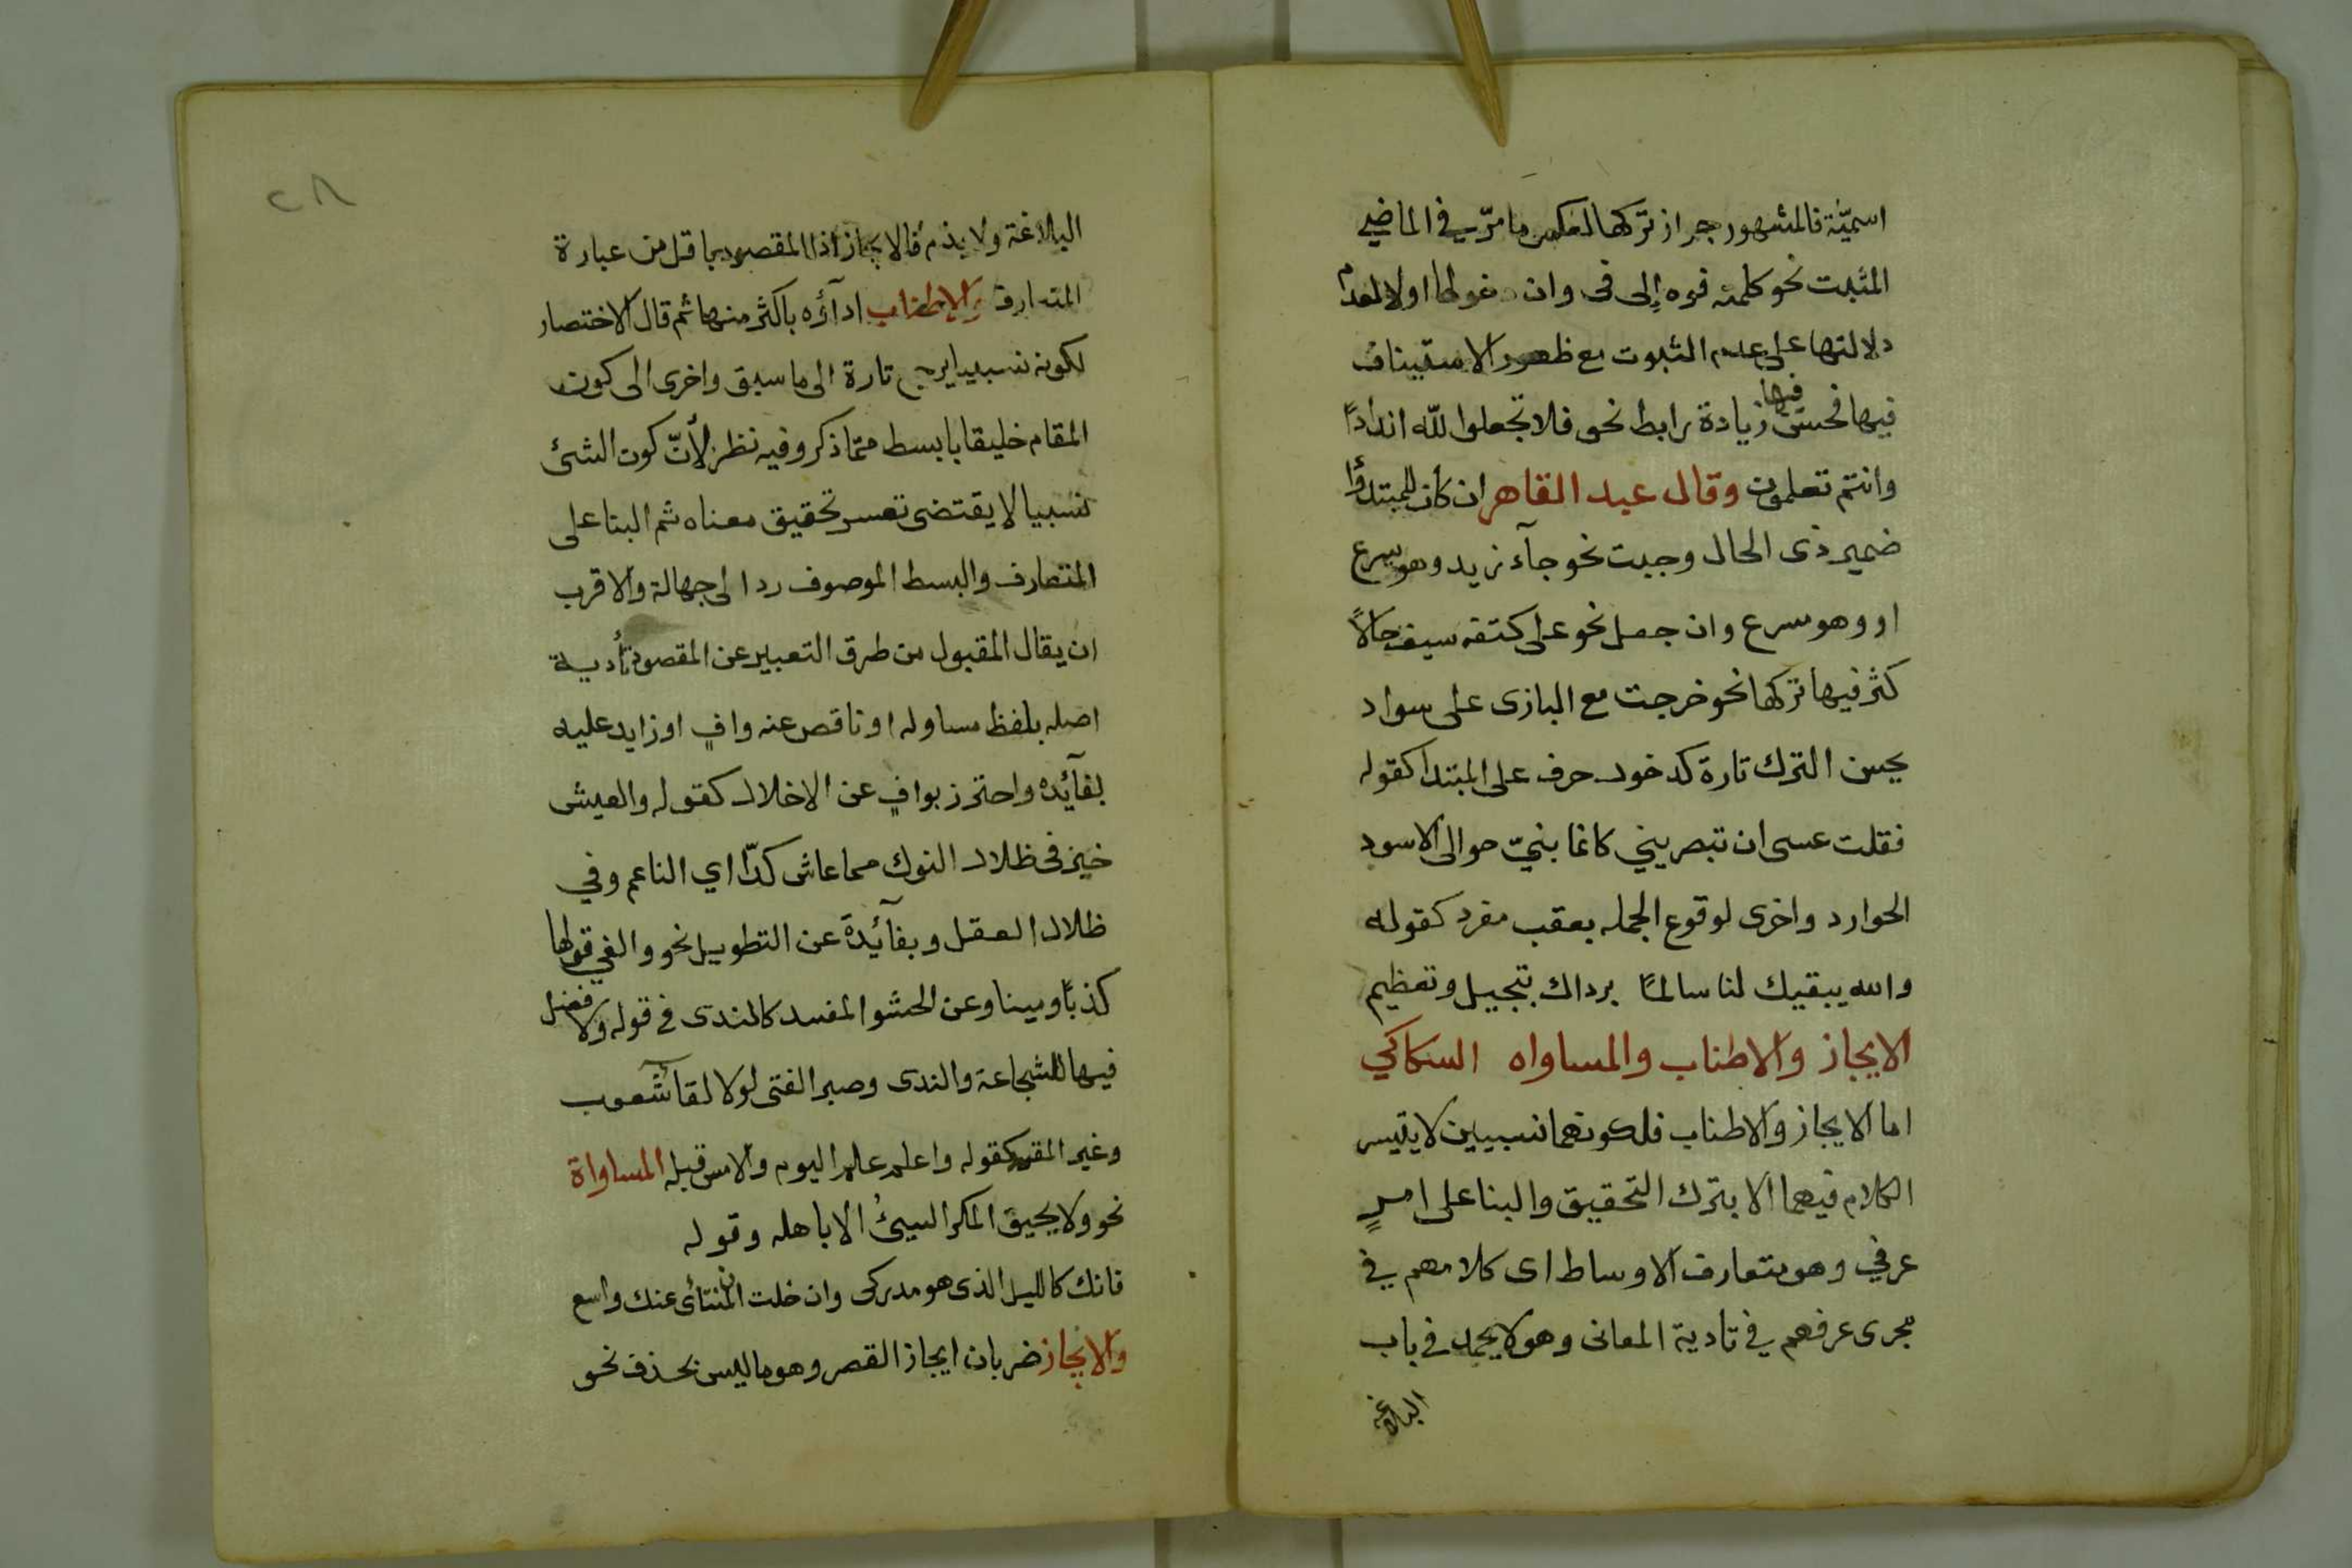 اسميّة فالمشهور جواز تركها لعكس ما مرّ في الماضي
المثبت نحو كلمته فوه إلى فى وان دخولها اولى لعدم
دلالتها على عدم الثبوت مع ظهور الاستيناف
فيها فحسن فيها زيادة رابط نحو فلا تجعلوا لله اندادًا
وانتم تعلمون وقال عبد القاهر ان كان المبتدأ
ضمير ذى الحال وجبت نحو جآء زيد وهو يسرع
او وهو مسرع وان جعل نحو على كتفه سيف حالًا
كثر فيها تركها نحو خرجت مع البازى على سواد
يحسن الترك تارة كدخول حرف على المبتدا كقوله
فقلت عسى ان تبصريني كانما بنيّ حوالى الاسود
الحوارد واخرى لوقوع الجمله بعقب مفرد كقوله
والله يبقيك لنا سالمًا برداك تبجيل وتعظيم
الايجاز والاطناب والمساواه السكاكي
اما الايجاز والاطناب فلكونهما نسبيين لا يتيسر
الكلام فيهما الا بترك التحقيق والبنا على امرٍ
عرفي وهو متعارف الاوساط اى كلامهم في
مجرى عرفهم في تادية المعانى وهو لا يحمد في باب
البلاغة
٢٨
البلاغة ولا يذم فالايجاز اذا المقصود بما قل من عبارة
المتعارف والاطناب ادآؤه باكثر منها ثم قال الاختصار
لكونه نسبيا يرجع تارة الى ما سبق واخرى الى كون
المقام خليقا بابسط ممّا ذكر وفيه نظر لأنّ كون الشئ
نسبيا لا يقتضى تعسر تحقيق معناه ثم البنا على
المتعارف والبسط الموصوف ردا الى جهالة والاقرب
ان يقال المقبول من طرق التعبير عن المقصود تأدية
اصله بلفظ مساو له او ناقص عنه وافٍ او زايد عليه
لفآئده واحترز بوافٍ عن الاخلال كقوله والعيش
خير فى ظلال النوك مما عاش كدّا اي الناعم وفي
ظلال العقل وبفآئدة عن التطويل نحو والفي قولها
كذبًا ومينا وعن الحشو المفسد كالندى في قوله ولا فضل
فيها للشجاعة والندى وصبر الفتى لولا لقآ شعوب
وغير المفسد كقوله واعلم علم اليوم والامس قبله المساواة
نحو ولا يحيق المكر السيئُ الا باهله وقوله
فانك كالليل الذى هو مدركى وان خلت ان المنتأى عنك واسع
والايجاز ضربان ايجاز القصر وهو ما ليس بحذف نحو